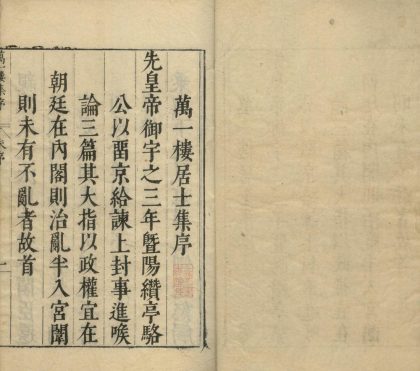 萬一樓居士集序
先皇帝御宇之三年暨陽纘亭駱
公以畱京給諫上封事進喉
論三篇其大指以政權宜在
朝廷在內閣則治亂半入宮闈
則未有不亂者故首
萬一樓集序
一